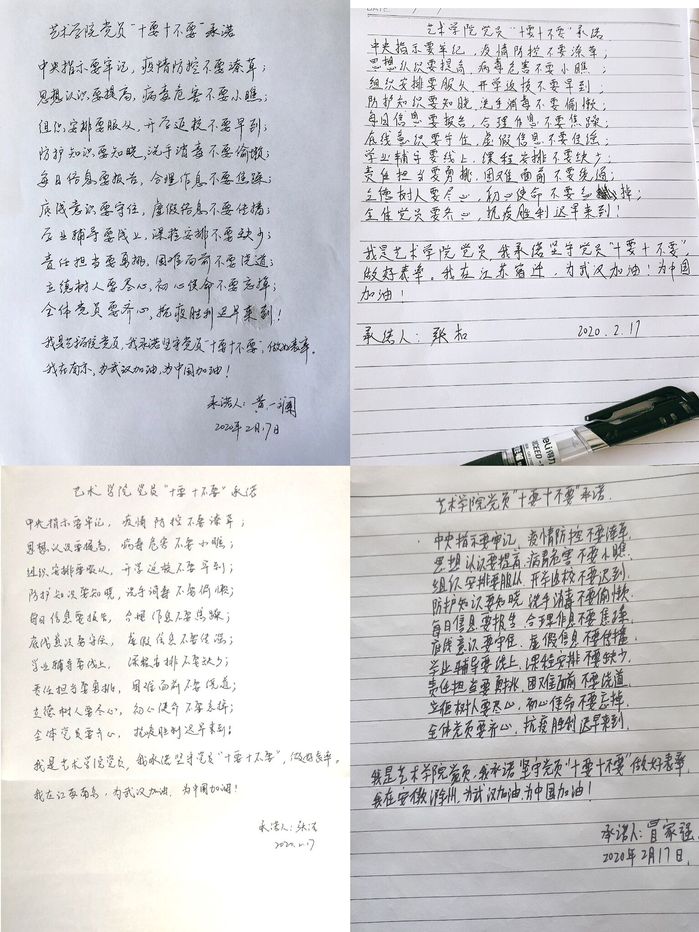 艺术学院党员"十要十不要"承诺
中央指示要牢记，疫情防控不要潦草；
思想认识要提高，病毒危害不要小瞧；
组织安排要服从，开学返校不要早到；
防护知识要知晓，洗手消毒不要偷懒；
每日信息要报告，合理作息不要焦躁；
底线意识要守住，虚假信息不要传播；
学业辅导要线上，课程安排不要缺少；
责任担当要勇挑，困难面前不要绕道；
立德树人要尽心，初心使命不要忘掉；
全体党员要齐心，抗疫胜利迟早来到！
我是艺术学院党员，我承诺坚守党员"十要十不要"，做好表率。
我在南京，为武汉加油，为中国加油！
承诺人：黄一澜
2020年2月17日
艺术学院党员"十要十不要"承诺
中央指示要牢记，疫情防控不要潦草；
思想认识要提高，病毒危害不要小瞧；
组织安排要服从，开学返校不要早到；
防护知识要知晓，洗手消毒不要偷懒；
每日信息要报告，合理作息不要焦躁；
底线意识要守住，虚假信息不要传谣；
学业辅导要线上，课程安排不要缺少；
责任担当要勇挑，困难面前不要绕道；
立德树人要尽心，初心使命不要忘掉；
全体党员要齐心，抗疫胜利迟早来到！
我是艺术学院党员，我承诺坚守党员"十要十不要"，
做好表率。我在江苏宿迁，为武汉加油！为中国
加油！
承诺人：张和
2020.2.17
deli得力
艺术学院党员"十要十不要"承诺
中央指示要牢记，疫情防控不要潦草；
思想认识要提高，病毒危害不要小瞧；
组织安排要服从，开学返校不要早到；
防护知识要知晓，洗手消毒不要偷懒；
每日信息要报告，合理作息不要焦躁；
底线意识要守住，虚假信息不要传谣；
学业辅导要线上，课程安排不要缺少；
责任担当要勇挑，困难面前不要绕道；
立德树人要尽心，初心使命不要忘掉；
全体党员要齐心，抗疫胜利迟早来到！
我是艺术学院党员，我承诺坚守党员"十要十不要"，做好表率。
我在江苏南京，为武汉加油，为中国加油！
承诺人：张
2020.2.17
艺术学院党员"十要十不要"承诺
中央指示要牢记，疫情防控不要潦草，
思想认识要提高，病毒危害不要小瞧，
组织安排要服从，开学返校不要迟到，
防护知识要知晓，洗手消毒不要偷懒，
每日信息要报告，合理作息不要焦躁，
底线意识要守住，虚假信息不要传播，
学业辅导要线上，课程安排不要缺少，
责任担当要勇挑，困难面前不要绕道，
立德树人要尽心，初心使命不要忘掉，
全体党员要齐心，抗疫胜利迟早来到，
我是艺术学院党员，我承诺坚守党员"十要十不要"做好表率，
我在安徽滁州，为武汉加油，为中国加油！
承诺人：胥家强
2020年2月17日